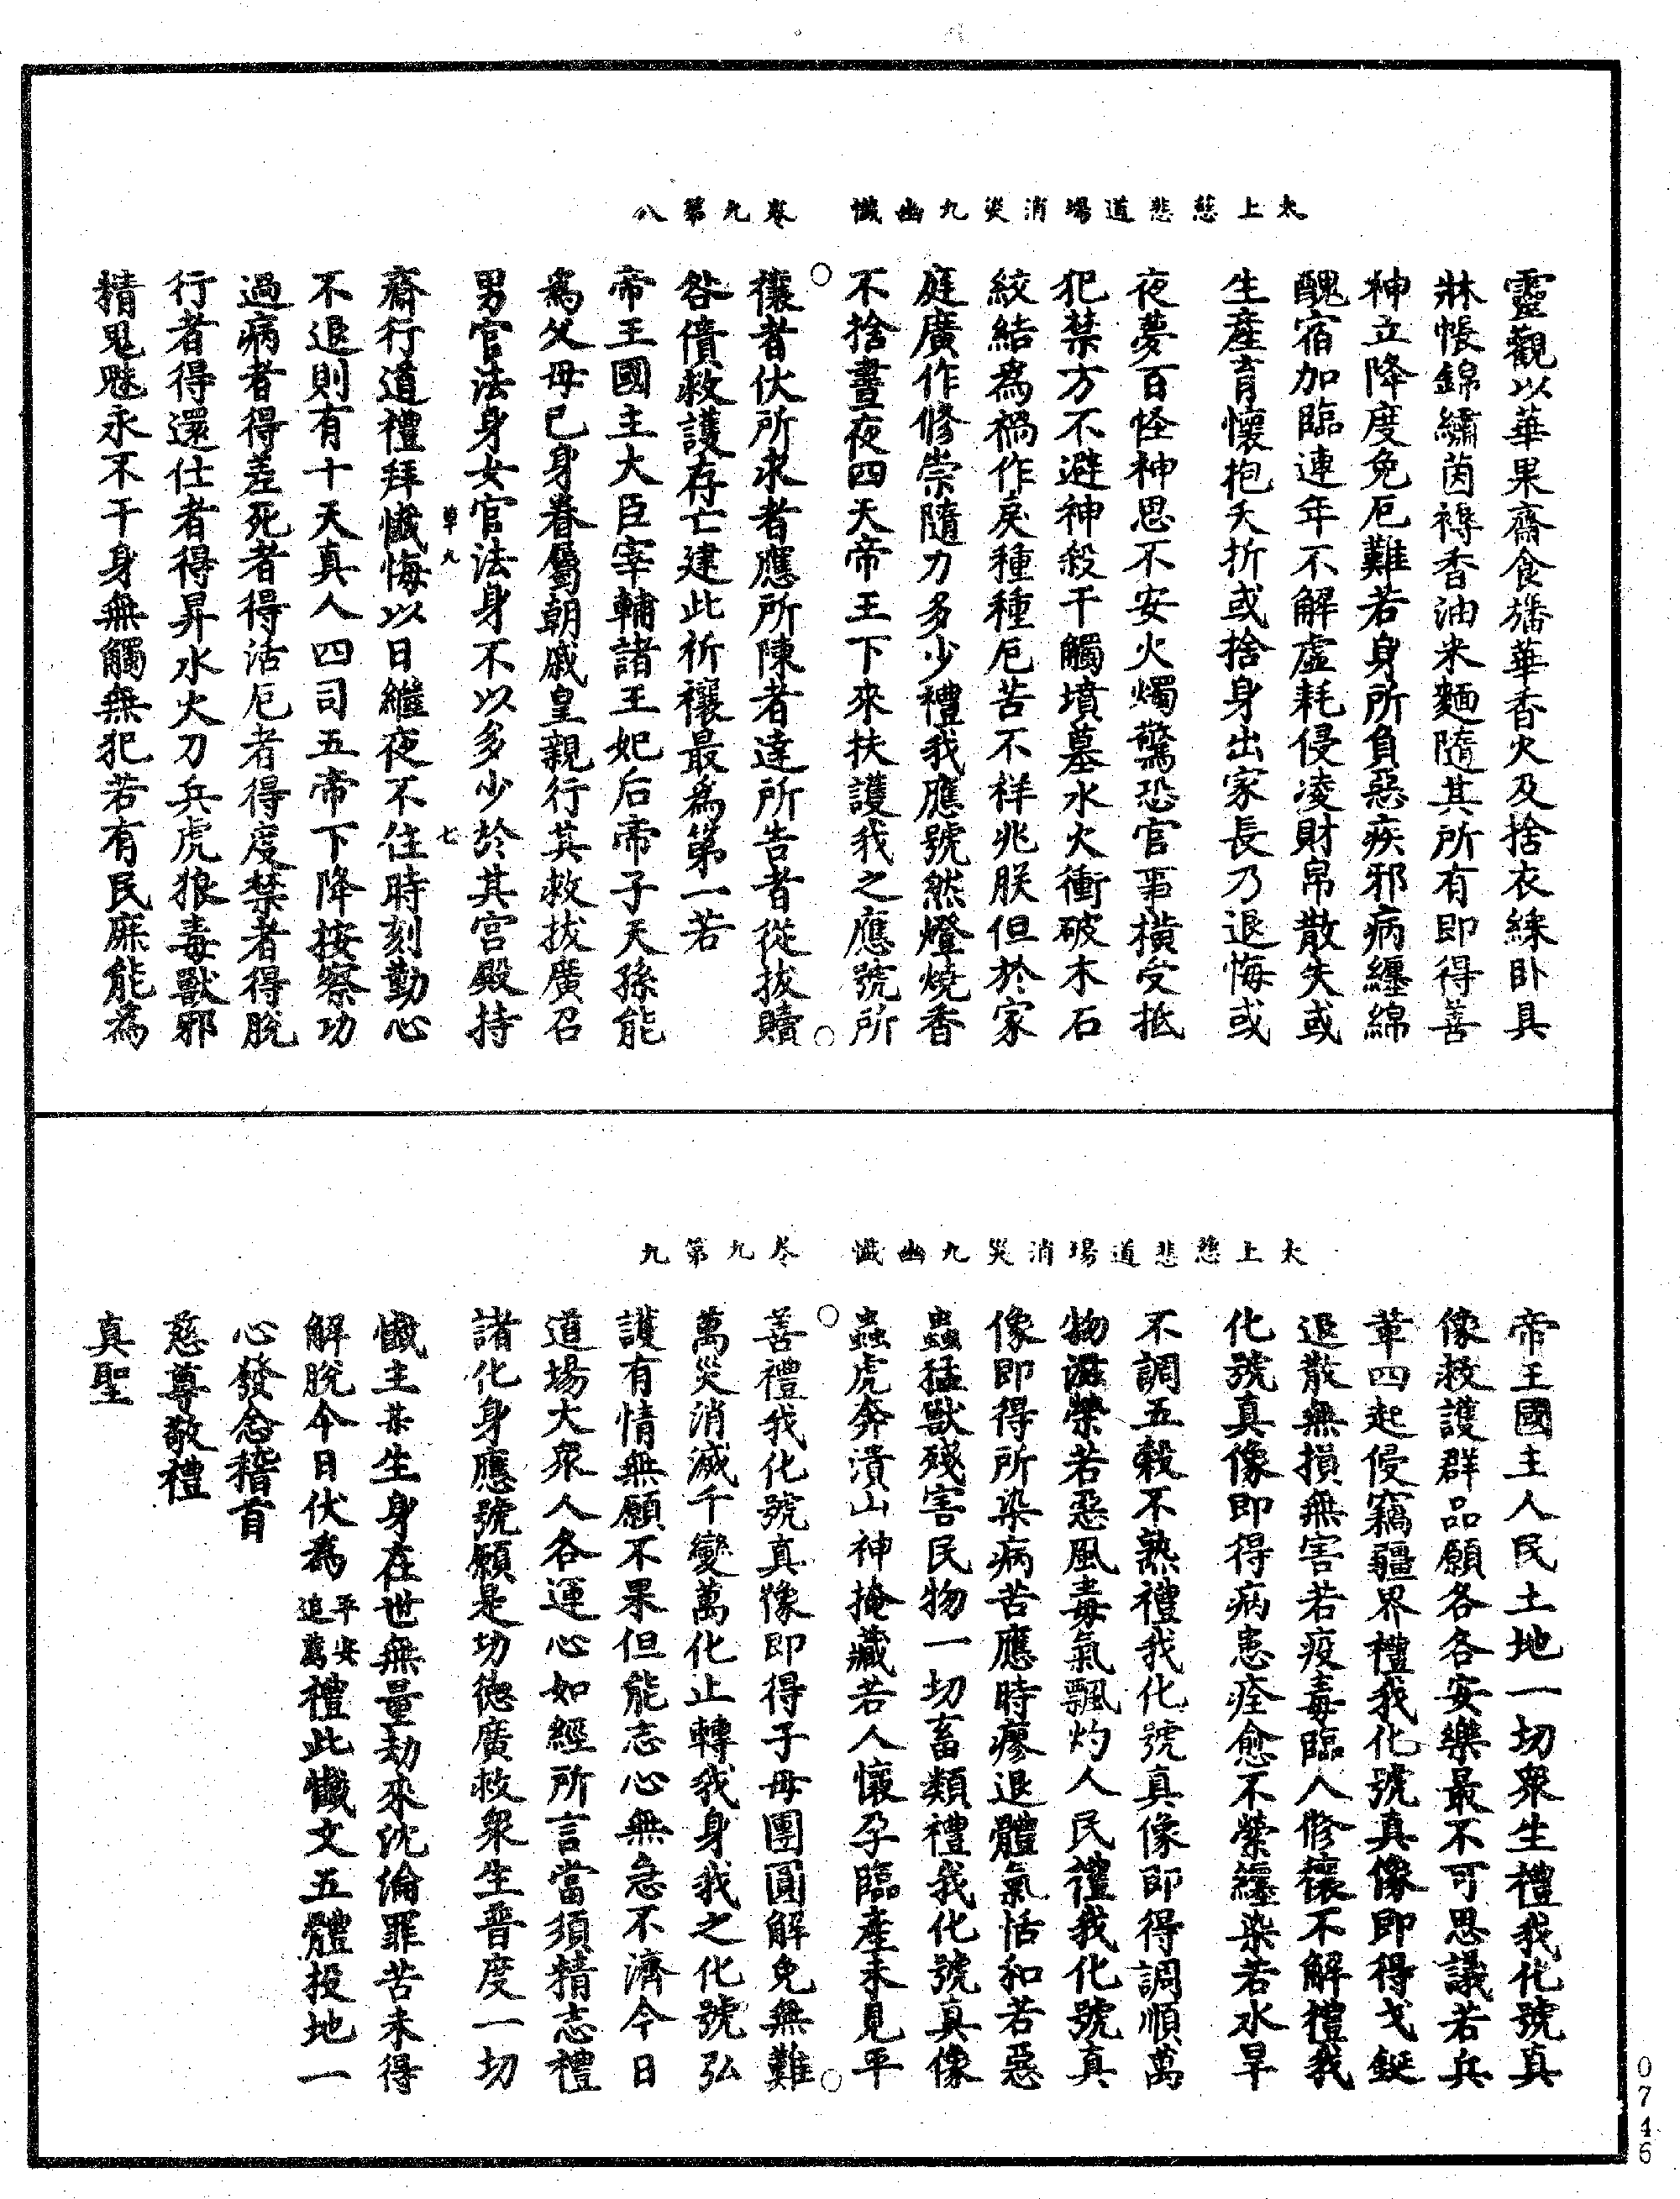 太上慈悲道場消災九幽懺　卷九第八
靈觀以華果齋食旛華香火及捨衣綵卧具
牀帳錦繡茵褥香油米麵隨其所有即得善
神立降度免厄難若身所負惡疾邪病纏綿
醜宿加臨連年不解虛耗侵凌財帛散失或
生產育懷抱夭折或捨身出家長乃退悔或
夜夢百怪神思不安火燭驚恐官事橫受抵
犯禁方不避神殺干觸墳墓水火衝破木石
絞結為禍作戾種種厄苦不祥兆朕但於家
庭廣作修崇隨力多少禮我應號然燈燒香
不捨晝夜四天帝王下來扶護我之應號所
○禳者伏所求者應所陳者達所告者從拔贖○
咎債救護存亡建此祈禳最為第一若
帝王國主大臣宰輔諸王妃后帝子天孫能
為父母已身眷屬朝戚皇親行其救拔廣召
男官法身女官法身不以多少於其宮殿持
草九　七
齋行道禮拜懺悔以日繼夜不住時刻勤心
不退則有十天真人四司五帝下降按察功
過病者得差死者得活厄者得度禁者得脫
行者得還仕者得昇水火刀兵虎狼毒獸邪
精鬼魅永不干身無觸無犯若有民庶能為
太上慈悲道場消災九幽懺　卷九第九
帝王國主人民土地一切眾生禮我化號真
像救護群品願各各安樂最不可思議若兵
革四起侵竊疆界禮我化號真像即得戈鋋
退散無損無害若疫毒臨人修禳不解禮我
化號真像即得病患痊愈不縈纏染若水旱
不調五穀不熟禮我化號真像即得調順萬
物滋榮若惡風毒氣飄灼人民禮我化號真
像即得所染病苦應時瘳退體氣恬和若惡
蟲猛獸殘害民物一切畜類禮我化號真像
蟲虎奔潰山神掩藏若人懷孕臨產未見平
○善禮我化號真像即得子母團圓解免無難○
萬災消滅千變萬化止轉我身我之化號弘
護有情無願不果但能志心無急不濟今日
道場大眾人各運心如經所言當須精志禮
諸化身應號願是功德廣救眾生晋度一切
懺主某生身在世無量劫來沈淪罪苦未得
解脫今日伏為平安追薦禮此懺文五體投地一
心發念稽首
慈尊敬禮
真聖
0746